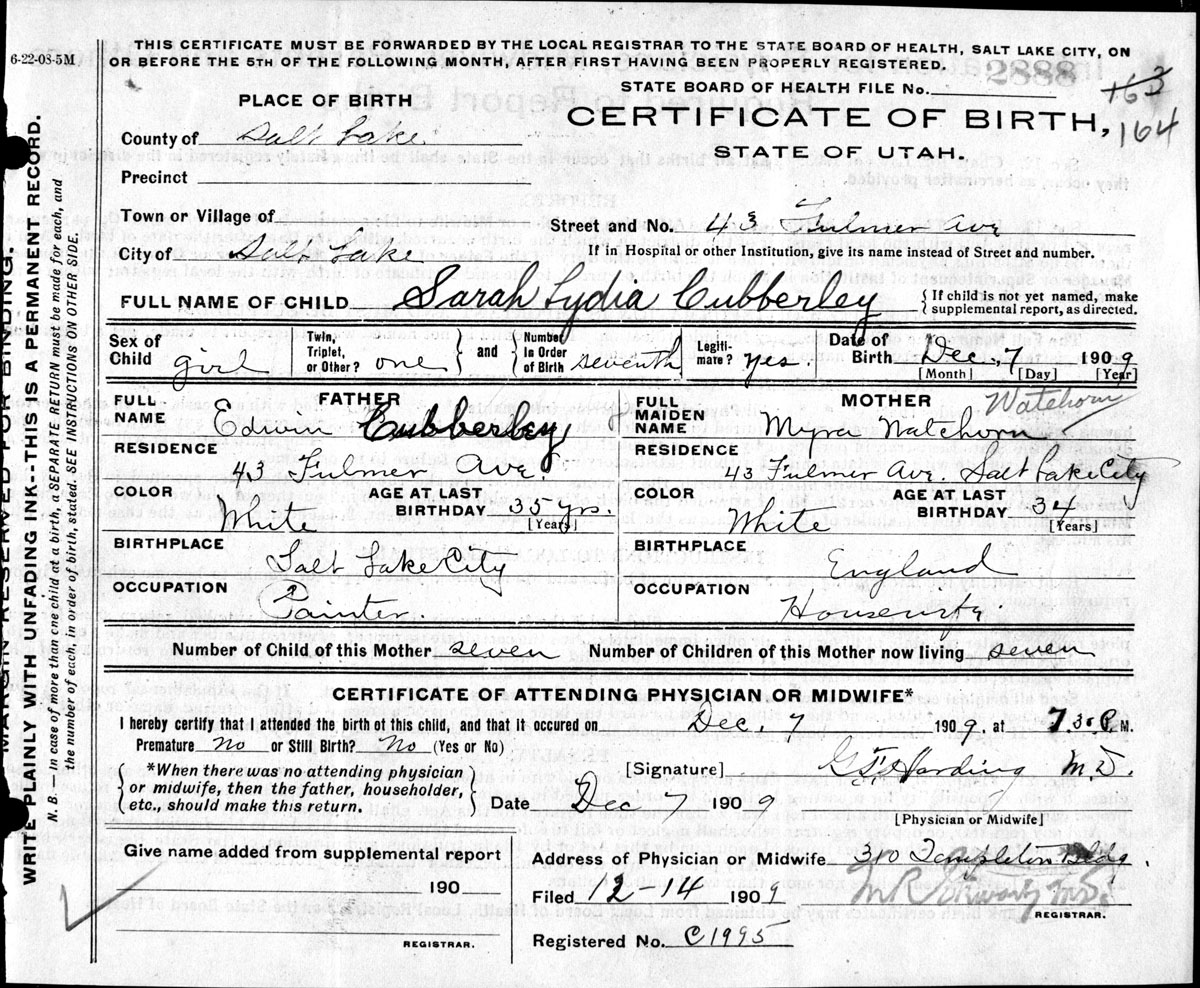 THIS CERTIFICATE MUST BE FORWARDED BY THE LOCAL REGISTRAR TO THE STATE BOARD OF HEALTH, SALT LAKE CITY, ON
OR BEFORE THE 5TH OF THE FOLLOWING MONTH, AFTER FIRST HAVING BEEN PROPERLY REGISTERED.
6-22-08-5M
2888
STATE BOARD OF HEALTH FILE No.
163
164
PLACE OF BIRTH
CERTIFICATE OF BIRTH,
STATE OF UTAH.
County of Salt Lake.
Precinct
Town or Village of
Street and No. 43 Fulmer Ave
City of Salt Lake
If in Hospital or other Institution, give its name instead of Street and number.
FULL NAME OF CHILD Sarah Lydia Cubberley
{If child is not yet named, make
supplemental report, as directed.
Sex of Child girl
Twin, Triplet, or Other? one } and { Number in Order of Birth seventh
Legitimate? yes.
Date of Birth Dec, 7 1909
[Month] [Day] [Year]
FATHER
FULL NAME Edwin Cubberley
RESIDENCE 43 Fulmer Ave.
COLOR White
AGE AT LAST BIRTHDAY 35 yrs.
[Years]
BIRTHPLACE Salt Lake City
OCCUPATION Painter.
MOTHER Watehorn
FULL MAIDEN NAME Myra Watehorn
RESIDENCE 43 Fulmer Ave. Salt Lake City
COLOR White
AGE AT LAST BIRTHDAY 34
[Years]
BIRTHPLACE England
OCCUPATION Housewife.
Number of Child of this Mother seven Number of Children of this Mother now living seven
CERTIFICATE OF ATTENDING PHYSICIAN OR MIDWIFE*
I hereby certify that I attended the birth of this child, and that it occured on Dec, 7 1909, at 7.30 P. M.
Premature No or Still Birth? No (Yes or No)
{*When there was no attending physician
or midwife, then the father, householder,
etc., should make this return.}
[Signature] G F Harding M.D.
Date Dec 7 1909
[Physician or Midwife]
Give name added from supplemental report
190
REGISTRAR.
Address of Physician or Midwife 310 Templeton Bldg.
Filed 12-14 1909
REGISTRAR.
Registered No. C1995
MARGIN RESERVED FOR BINDING.
WRITE PLAINLY WITH UNFADING INK--THIS IS A PERMANENT RECORD.
N. B.—In case of more than one child at a birth, a SEPARATE RETURN must be made for each, and
the number of each, in order of birth, stated. SEE INSTRUCTIONS ON OTHER SIDE.